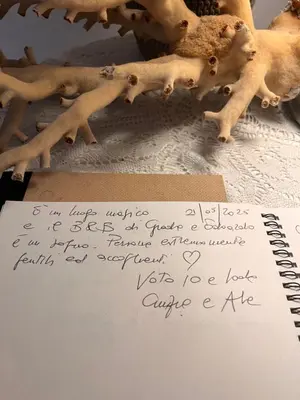 È un luogo magico 2|05|2025
e il B&B di Guido e Donato
è un sogno. Persone estremamente
gentili ed accoglienti ♡
Voto 10 e lode
e Ale